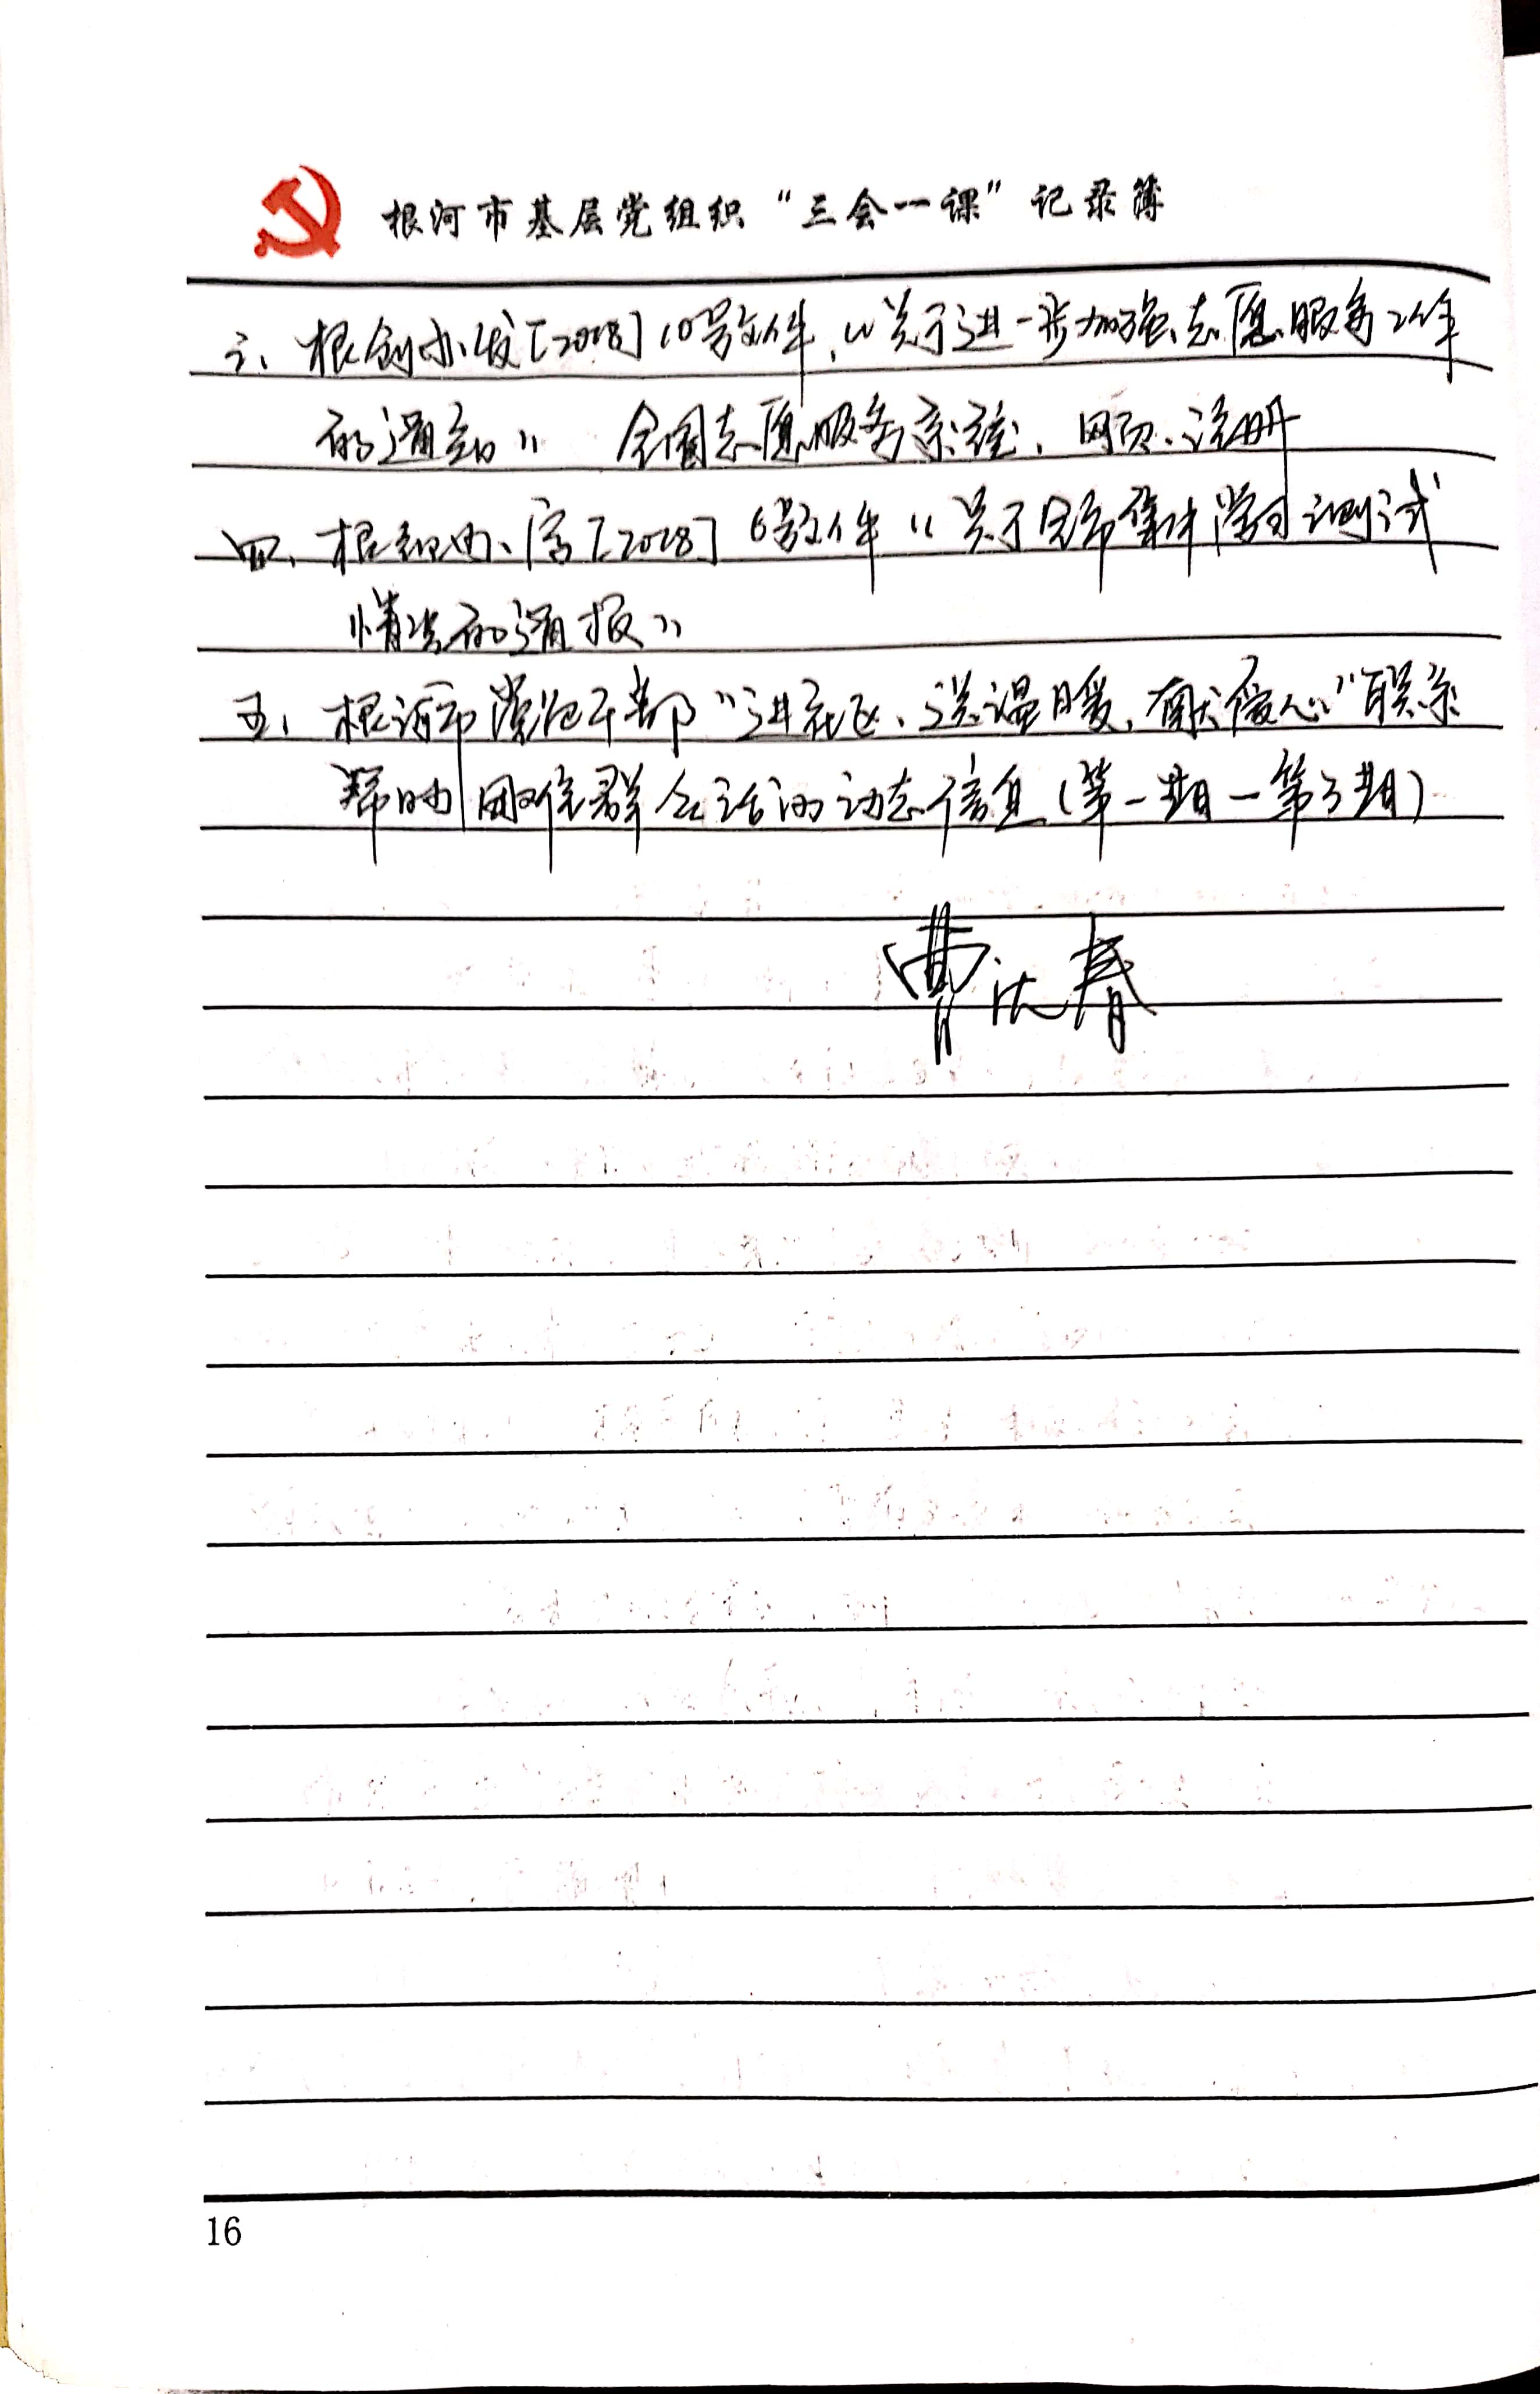 根河市基层党组织“三会一课”记录簿
三、根创办发[2018]10号文件，“关于进一步加强志愿服务工作
的通知” 全国志愿服务系统、网页、注册
四、根纪办、字[2018]6号文件“关于全市集中学习测试
情况的通报”
五、根河市党组干部“进社区、送温暖、献爱心”联系
帮助困难群众活动动态信息（第一期—第3期）
16